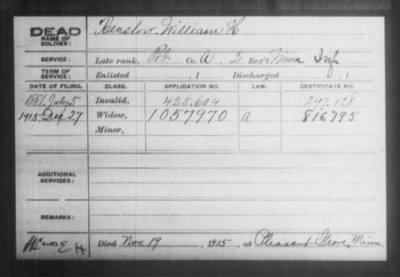 DEAD
NAME OF SOLDIER:
Renslow, William H
SERVICE:
Late rank, Pvt Co. A, 2 Reg't Minn Inf
TERM OF SERVICE:
Enlisted , 1 Discharged , 1
DATE OF FILING. CLASS. APPLICATION NO. LAW. CERTIFICATE NO.
1881 July 5 Invalid, 425.604 297.128
1915 Dec. 27 Widow, 1057970 a 816795
Minor,
ADDITIONAL SERVICES:
REMARKS:
Died Nov 19, 1915, at Pleasant Grove, Minn